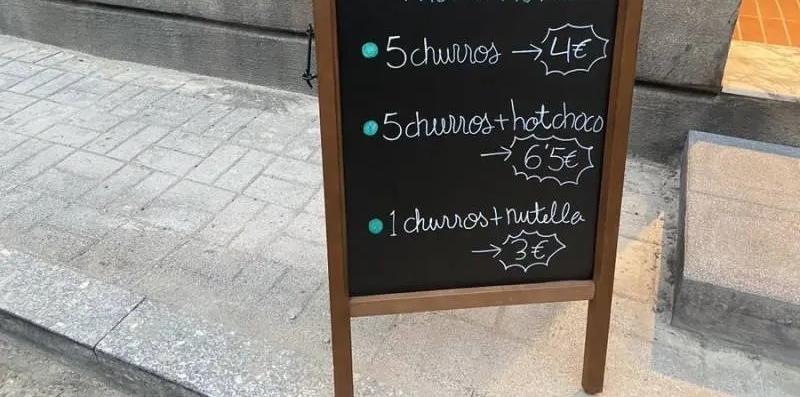 5 churros → 4€
5 churros + hot choco
→ 6'5€
1 churros + nutella
→ 3€